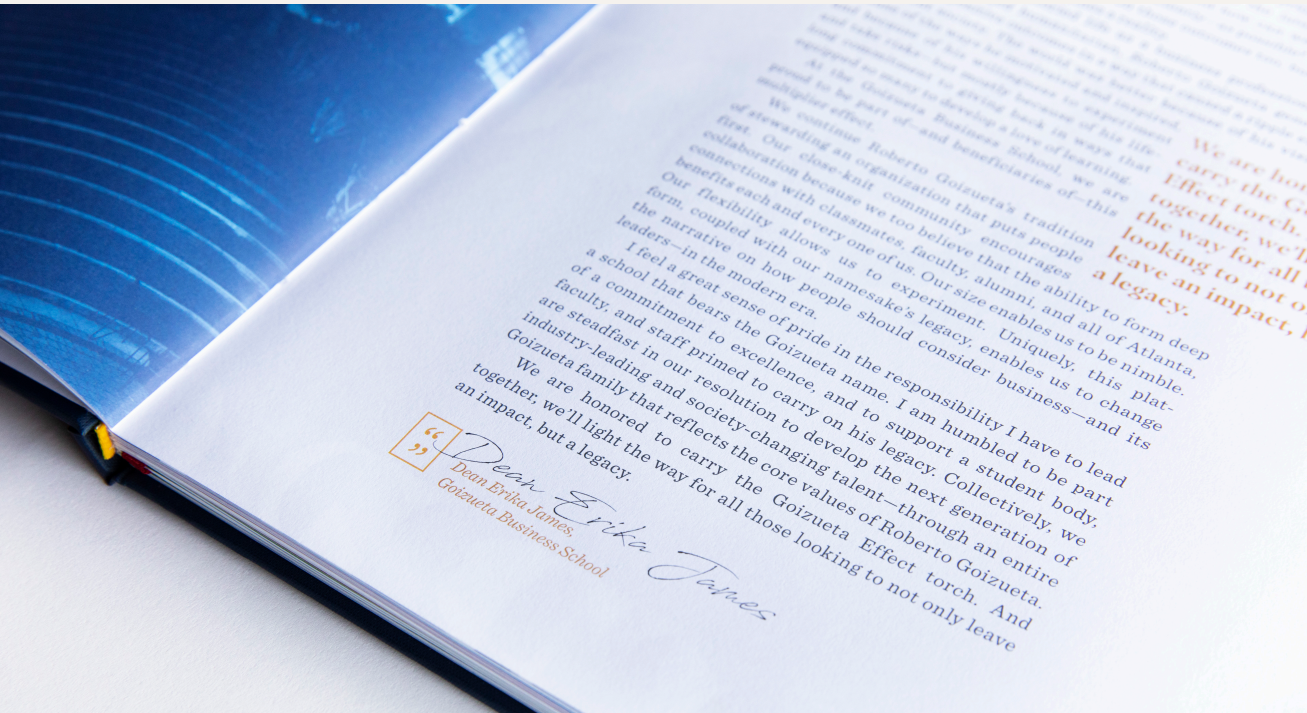 long commitment to giving back in ways that
equipped so many to develop a love of learning.
At the Goizueta Business School, we are
proud to be part of—and beneficiaries of—this
multiplier effect.
We continue Roberto Goizueta's tradition
of stewarding an organization that puts people
first. Our close-knit community encourages
collaboration because we too believe that the ability to form deep
connections with classmates, faculty, alumni, and all of Atlanta,
benefits each and every one of us. Our size enables us to be nimble.
Our flexibility allows us to experiment. Uniquely, this plat-
form, coupled with our namesake's legacy, enables us to change
the narrative on how people should consider business—and its
leaders—in the modern era.
I feel a great sense of pride in the responsibility I have to lead
a school that bears the Goizueta name. I am humbled to be part
of a commitment to excellence, and to support a student body,
faculty, and staff primed to carry on his legacy. Collectively, we
are steadfast in our resolution to develop the next generation of
industry-leading and society-changing talent—through an entire
Goizueta family that reflects the core values of Roberto Goizueta.
We are honored to carry the Goizueta Effect torch. And
together, we'll light the way for all those looking to not only leave
an impact, but a legacy.
“ ”
Dean Erika James
Dean Erika James,
Goizueta Business School
We are ho
carry the G
Effect torch.
together, we'll
the way for all
looking to not o
leave an impact,
a legacy.